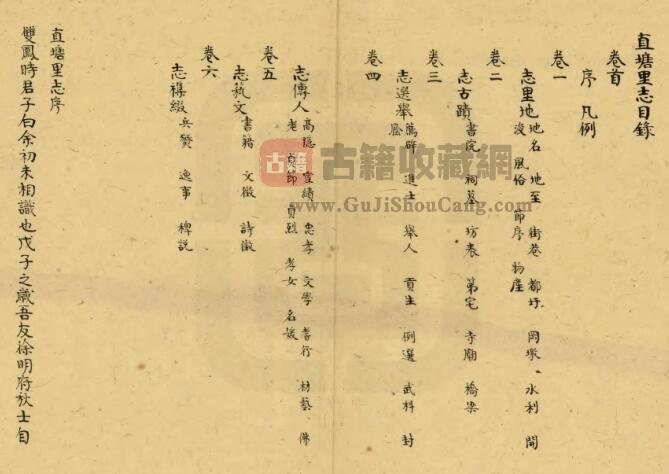 直塘里志目錄
卷首
序 凡例
卷一
志里地 地名 地至 街巷 都圩 岡墩 水利 開
浚 風俗 節序 物產
卷二
志古蹟 書院 祠墓 坊表 第宅 寺廟 橋梁
卷三
志選舉 薦辟 進士 舉人 貢生 例選 武科 封
廕
卷四
志傳人 高隱 宦績 忠孝 文學 耆行 材藝 佛
老 貞節 貞烈 孝女 名媛
卷五
志藝文 書籍 文徵 詩徵
卷六
志襍綴 兵燹 逸事 稗說
直塘里志序
雙鳳時君子白余初未相識也戊子之歲吾友徐明府秋士自
古籍 古籍收藏網
www.GuJiShouCang.com